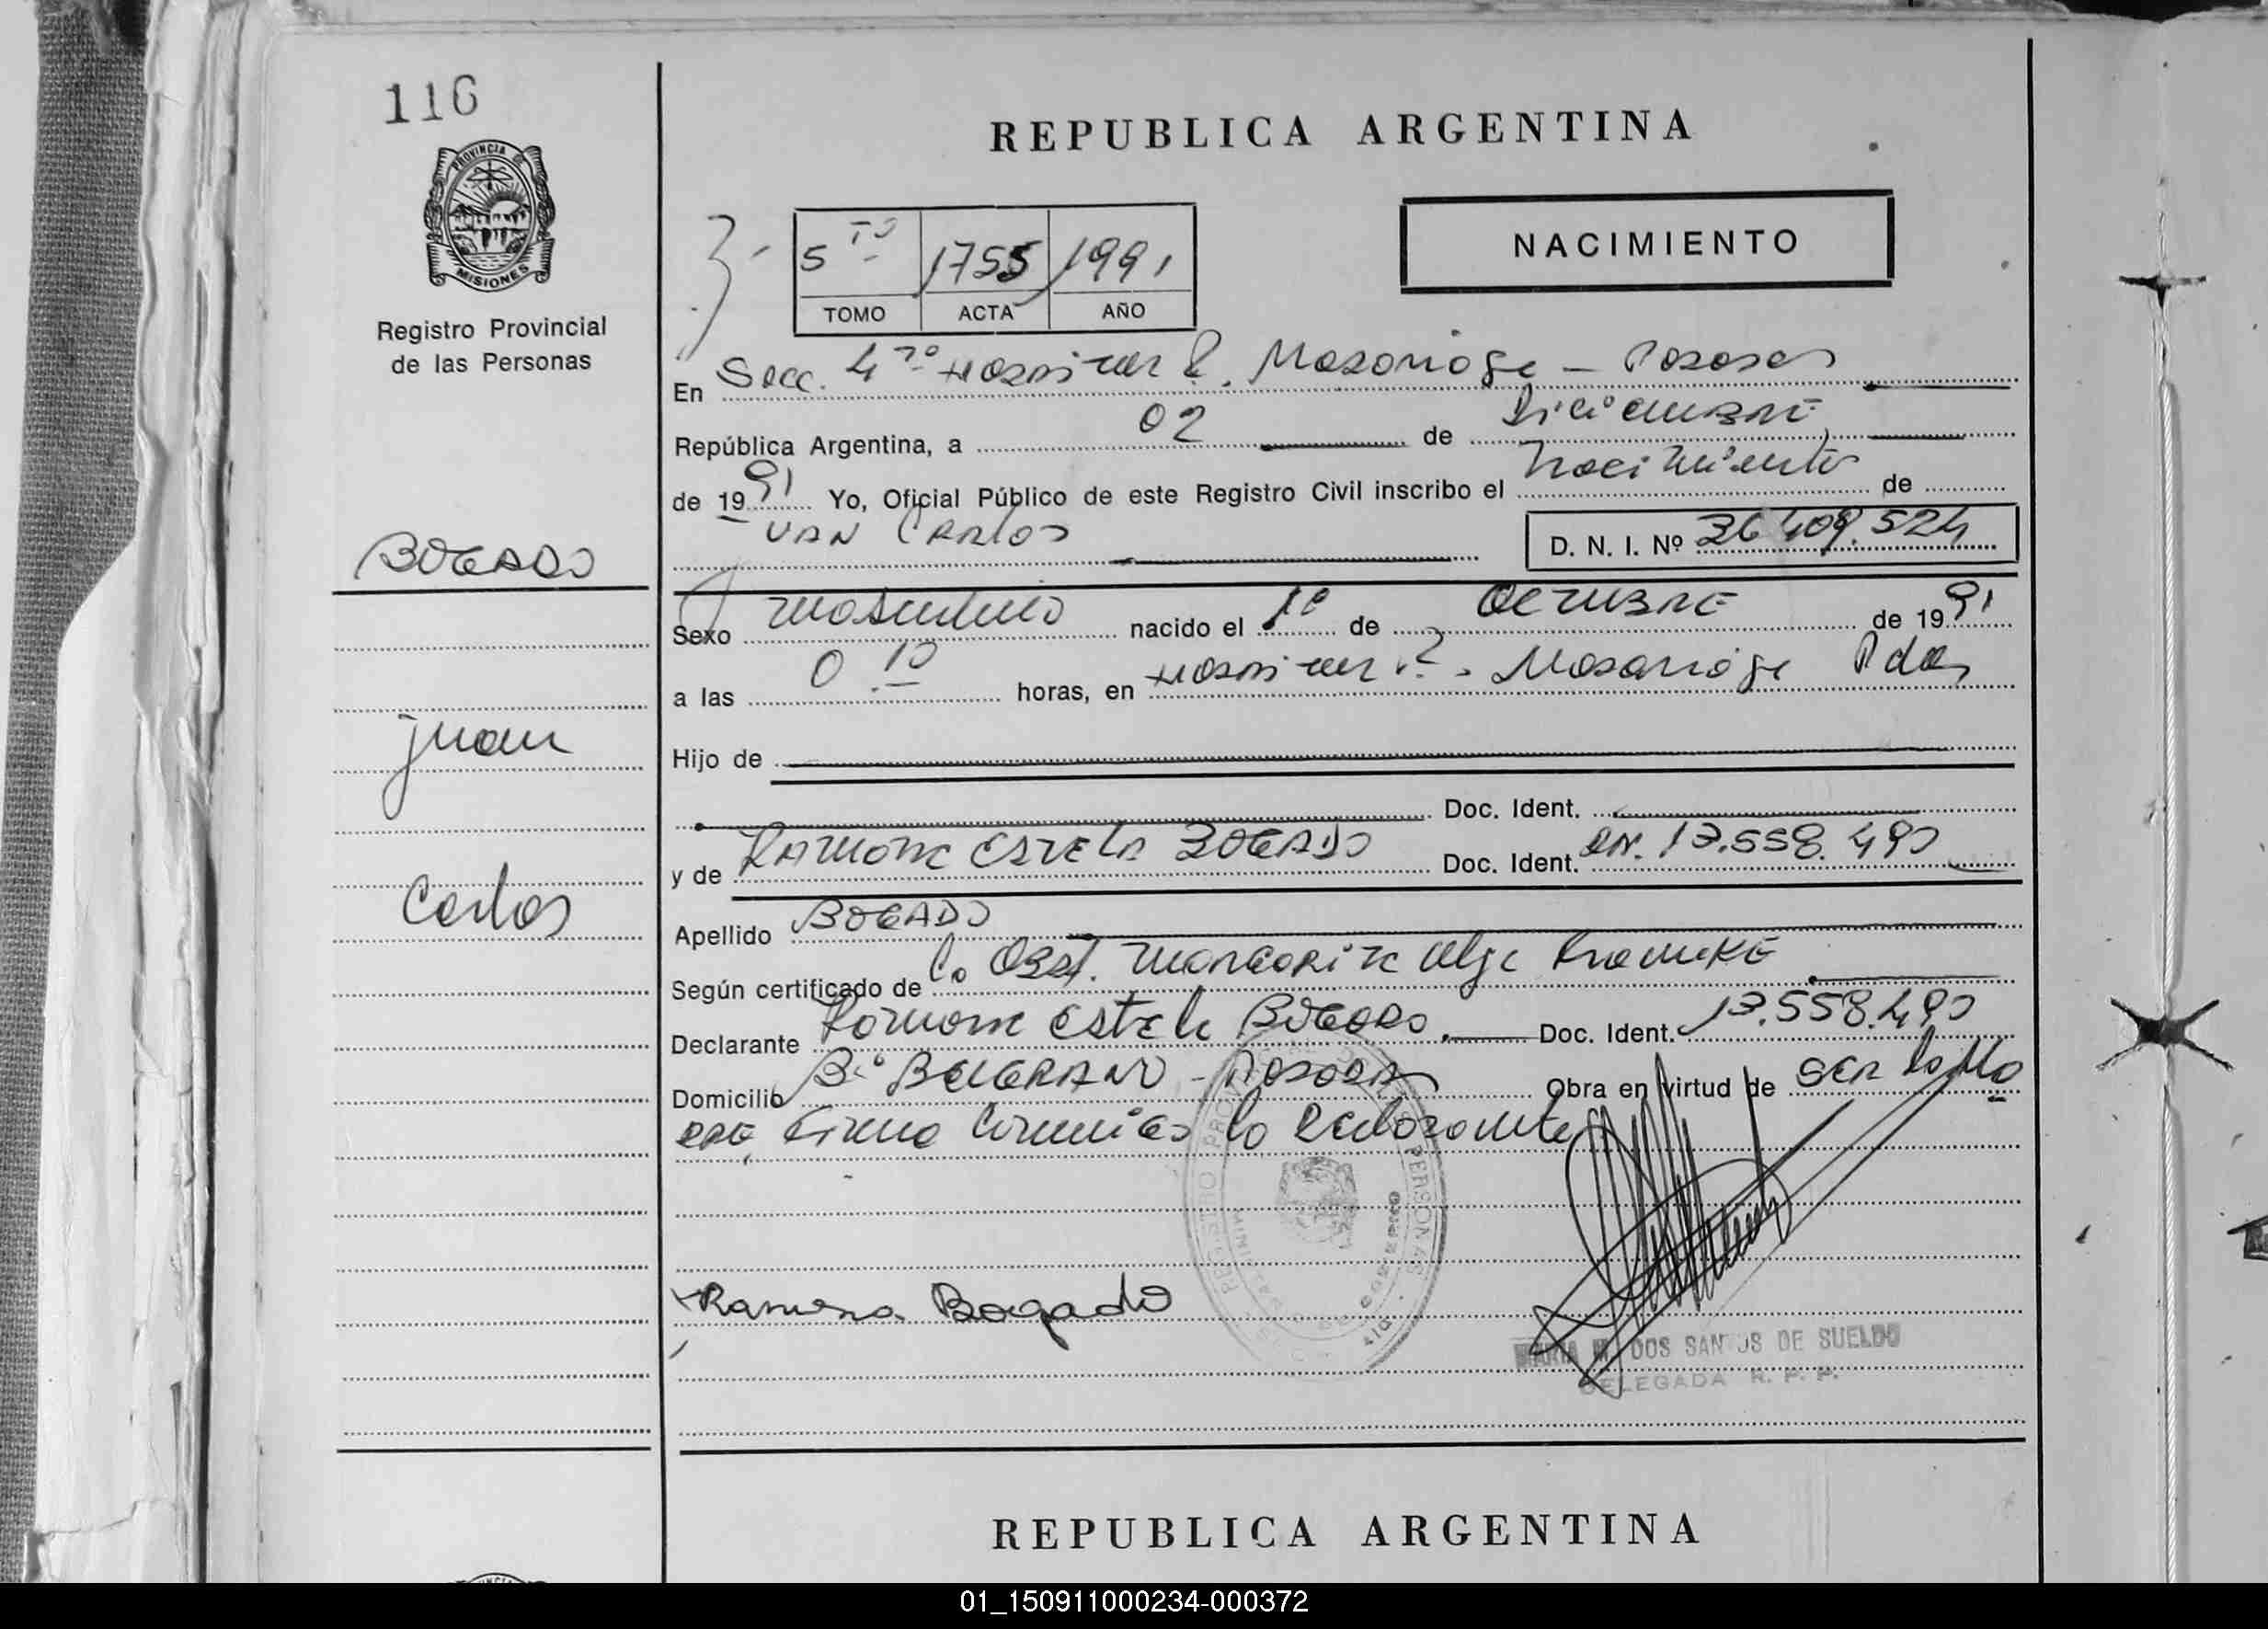 116
PROVINCIA DE
MISIONES
Registro Provincial
de las Personas
BOGADO
Juan
Carlos
REPUBLICA ARGENTINA
NACIMIENTO
5 TO 1755 1991
TOMO ACTA AÑO
En Secc. 4ta Hospital R. Madariaga - Posadas
República Argentina, a 02 de Diciembre
de 1991 Yo, Oficial Público de este Registro Civil inscribo el Nacimiento de
Juan Carlos D. N. I. Nº 36.409.524
Sexo masculino nacido el 1º de Octubre de 1991
a las 0.10 horas, en Hospital R. Madariaga Pdas
Hijo de
Doc. Ident.
y de Ramona Estela BOGADO Doc. Ident. DNI. 13.558.490
Apellido BOGADO
Según certificado de la Obst. Margarita Olga
Declarante Ramona Estela BOGADO Doc. Ident. 13.558.490
Domicilio Bº BELGRANO - Posadas Obra en virtud de ser la Ma
dre, firma conmigo la declarante
Ramona Bogado
REGISTRO PROVINCIAL DE LAS PERSONAS
MINISTERIO DE GOBIERNO
MARIA M. DOS SANTOS DE SUELDO
DELEGADA R. P. P.
REPUBLICA ARGENTINA
01_150911000234-000372